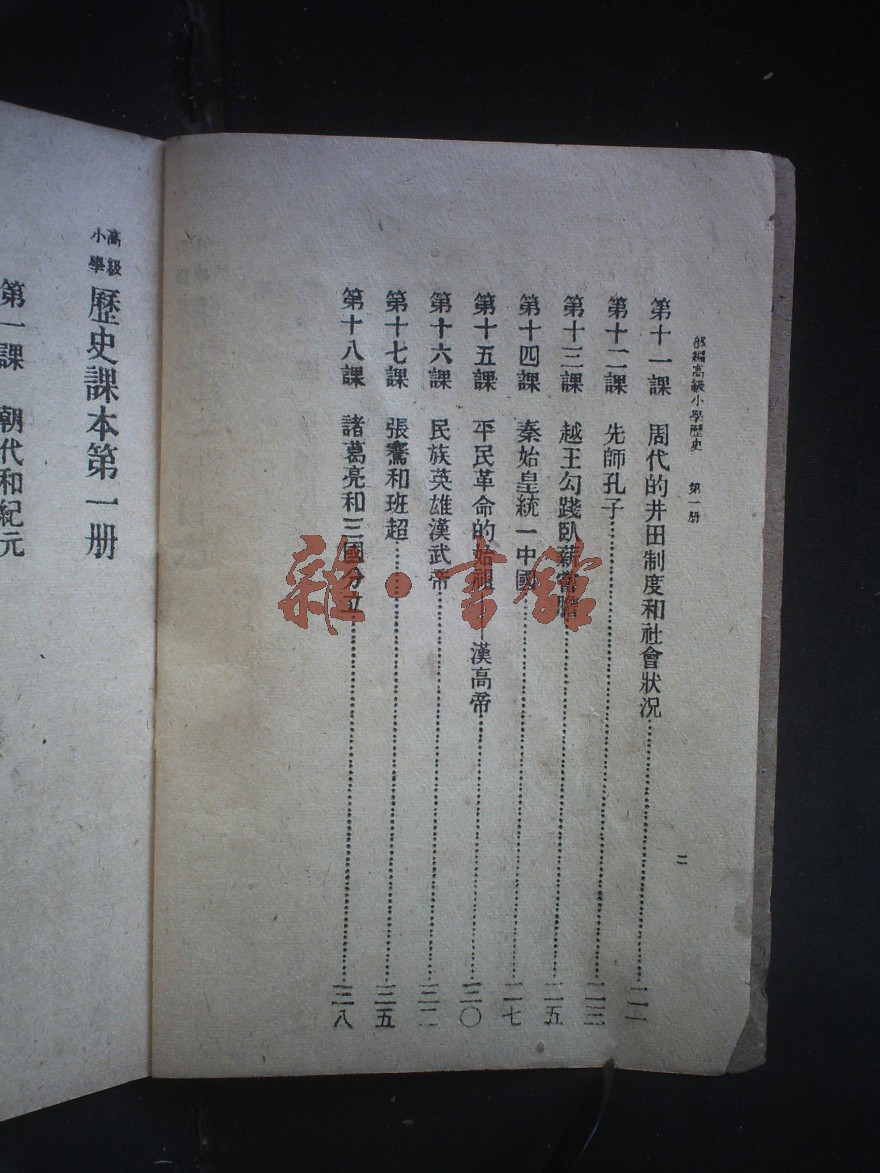 部編高級小學歷史 第一册 二
第十一課 周代的井田制度和社會狀況……二一
第十二課 先師孔子……二三
第十三課 越王勾踐臥薪嘗膽……二五
第十四課 秦始皇統一中國……二七
第十五課 平民革命的始祖——漢高帝……三〇
第十六課 民族英雄漢武帝……三二
第十七課 張騫和班超……三五
第十八課 諸葛亮和三國分立……三八
高級小學 歷史課本第一册
第一課 朝代和紀元
雜·書館